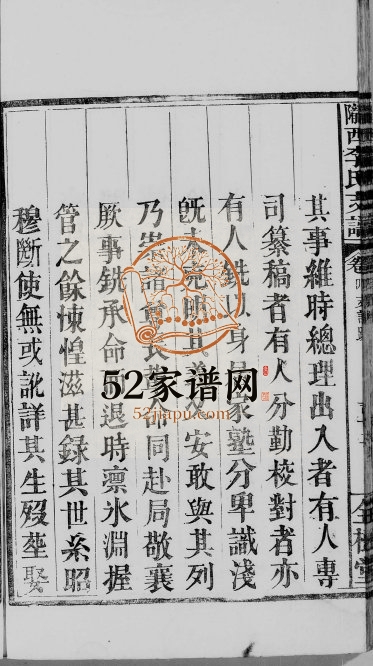 隴西李氏
卷
其事維時總理出入者有人專
司纂稿者有人分勤校對者亦
有人銑以身家塾分卑識淺
既未克明其安敢與其列
乃崇諸長命同赴局敬襄
厥事銑承命退時凛氷淵握
管之餘悚惶滋甚録其世系昭
穆斷使無或訛詳其生歿塋娶
52家谱网
52jiapu.com